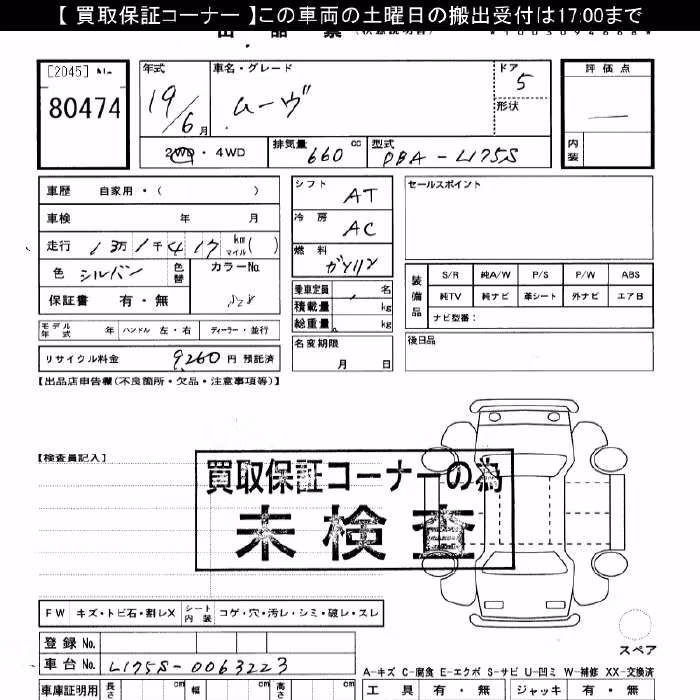 【 買取保証コーナー 】この車両の土曜日の搬出受付は17:00まで
[2045] No.
80474
年式 19/6月
車名・グレード ムーヴ
ドア 5
形状
評価点 ―
内装
2WD・4WD
排気量 660 cc
型式 DBA-L175S
車歴 自家用・( )
車検 年 月
走行 13万1千417 km マイル( )
色 シルバー 色替
カラーNo.
保証書 有・無
シフト AT
冷房 AC
燃料 ガソリン
乗車定員 名
積載量 kg
総重量 kg
セールスポイント
装備品
S/R 純A/W P/S P/W ABS
純TV 純ナビ 革シート 外ナビ エアB
ナビ型番:
モデル年式 年 ハンドル 左・右 ディーラー・並行
名変期限 月 日
後日品
リサイクル料金 9,260 円 預託済
【出品店申告欄(不良箇所・欠品・注意事項等)】
【検査員記入】
買取保証コーナーの為
未検査
FW キズ・トビ石・割レX シート内装 コゲ・穴・汚レ・シミ・破レ・スレ
スペア
登録 No.
車台 No. L175S-0063223
A-キズ C-腐食 E-エクボ S-サビ U-凹ミ W-補修 XX-交換済
車庫証明用 長さ cm 幅 cm 高さ cm
工具 有・無 ジャッキ 有・無